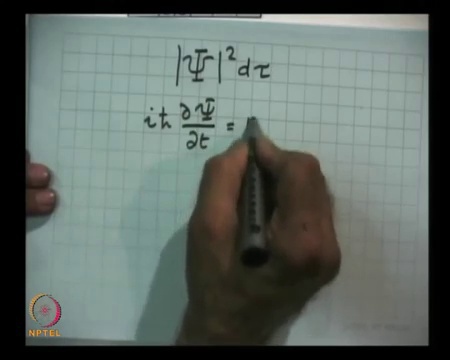 |Ψ|² dτ
iħ ∂Ψ/∂t =
NPTEL